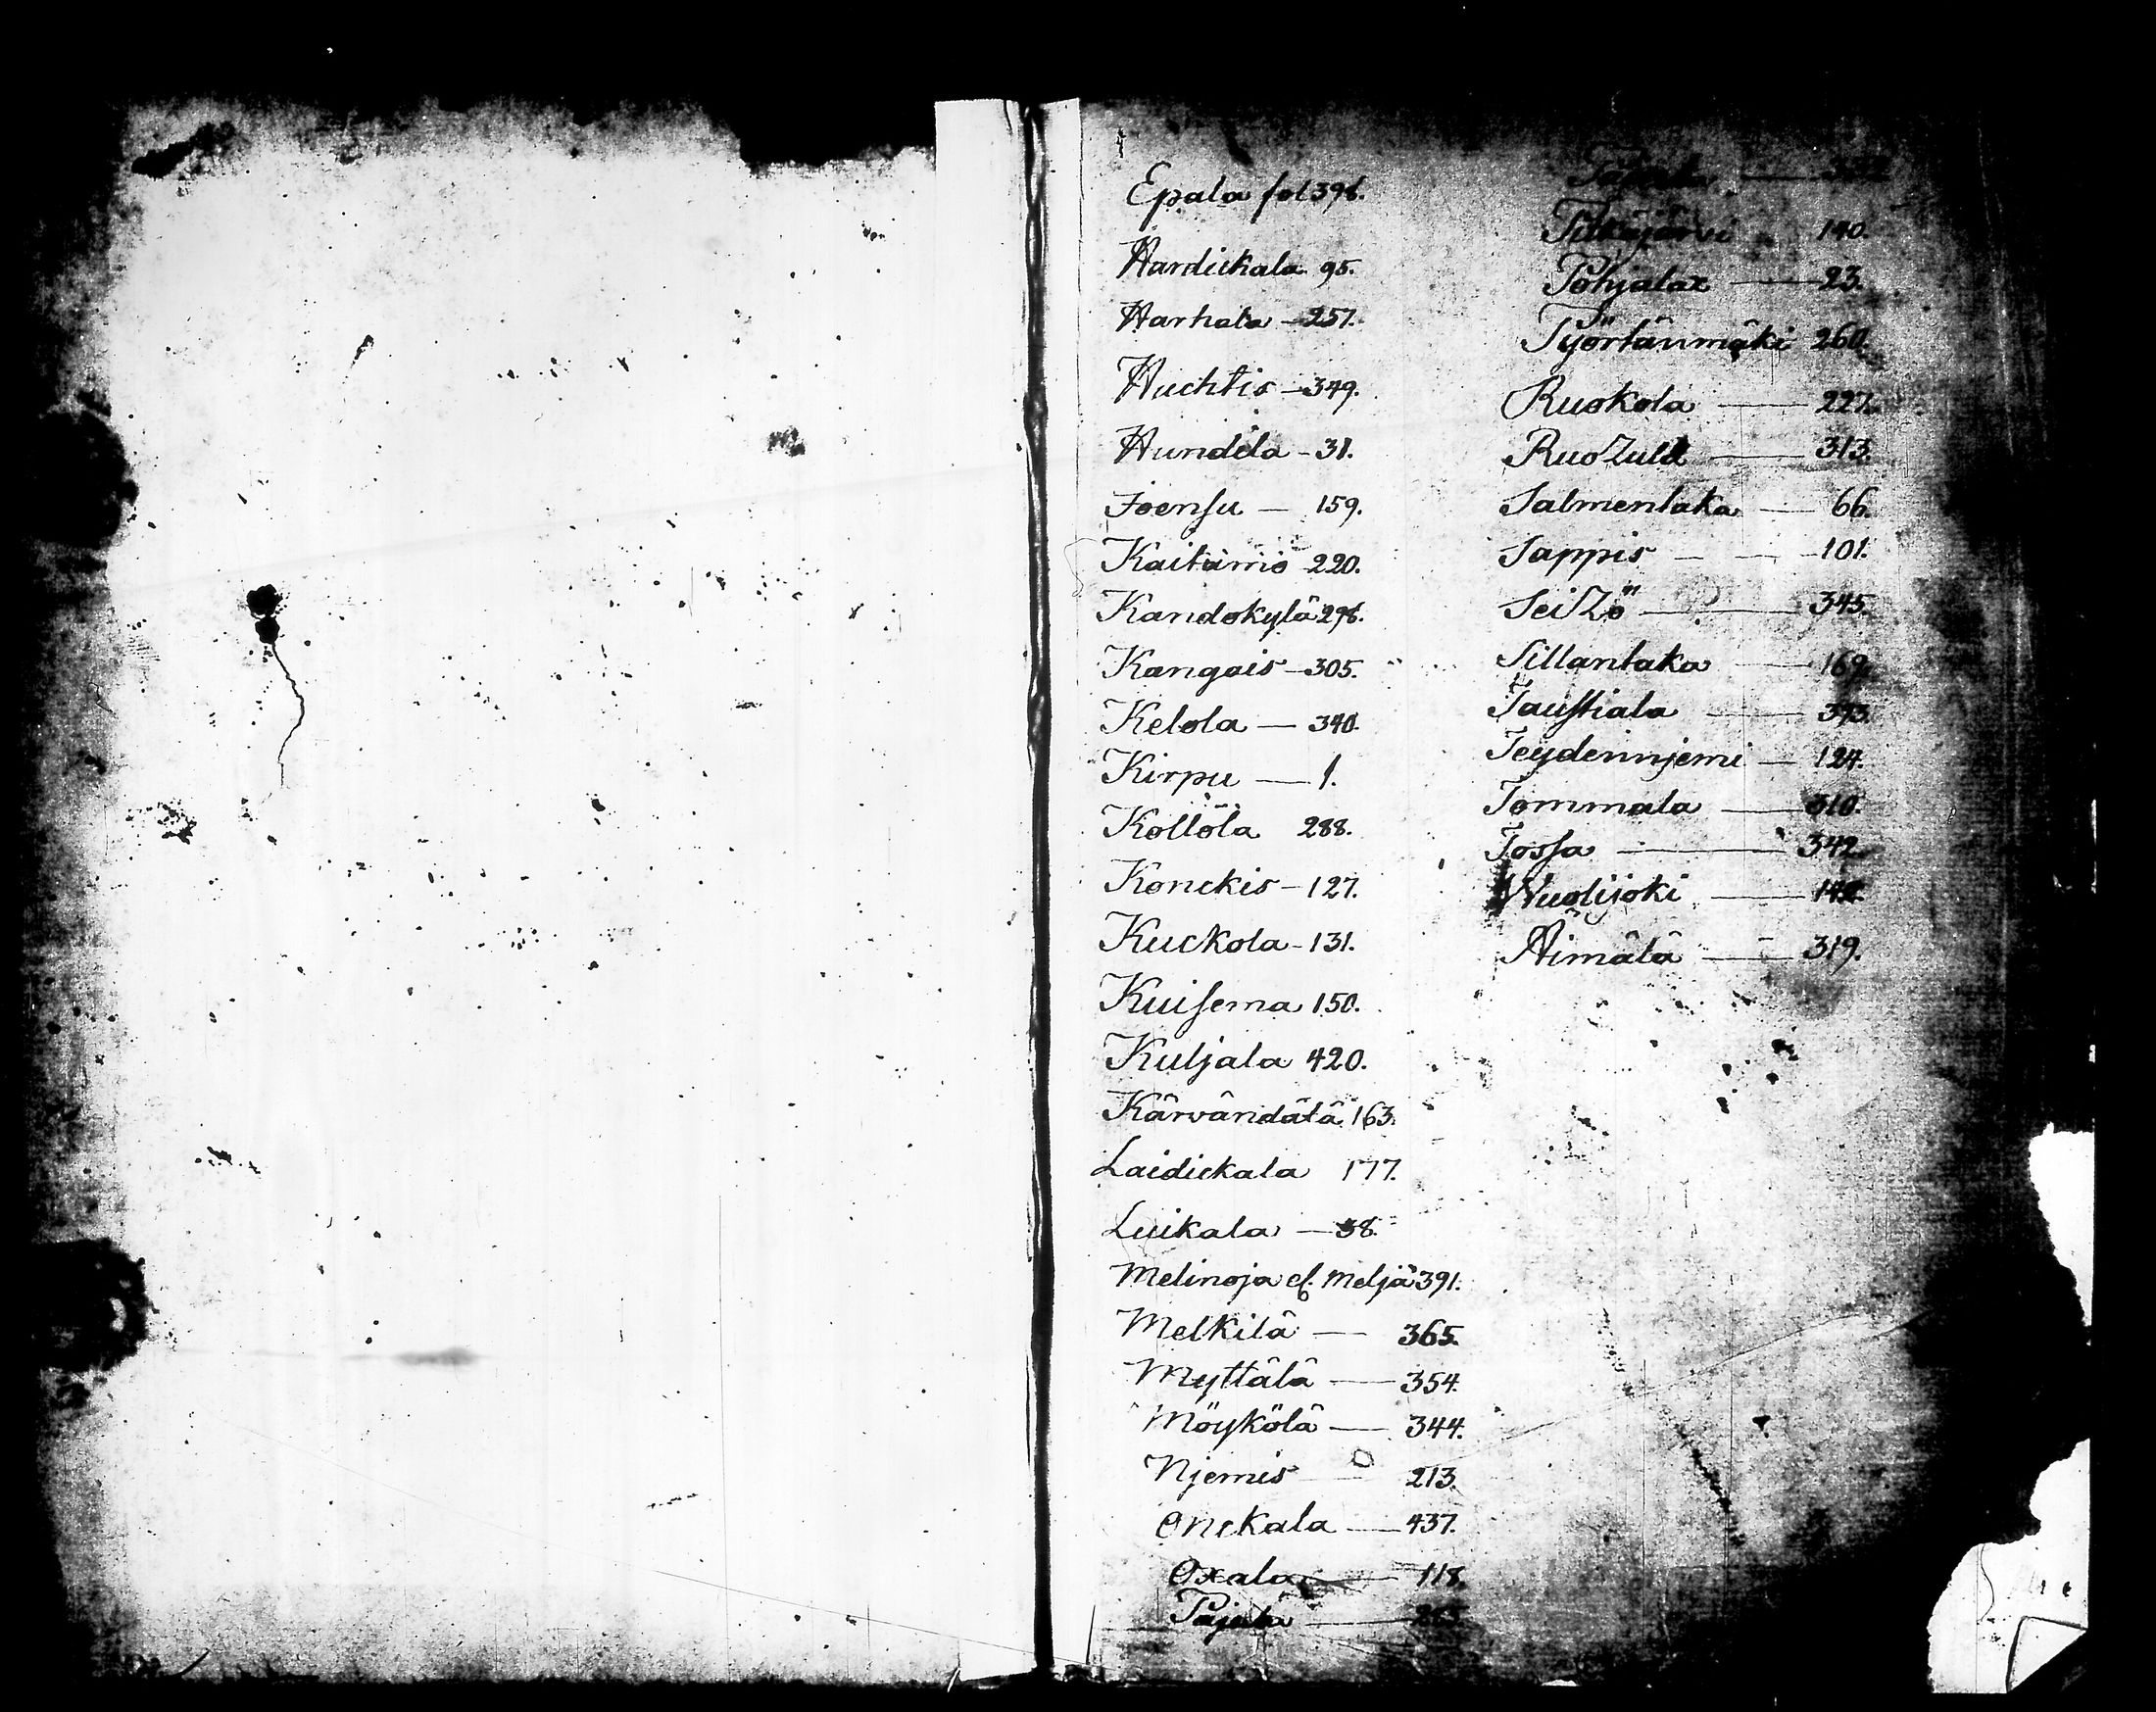 Epala fol 396.
Hardickala 95.
Harhala — 257.
Huchtis — 349.
Hundila - 31.
Joensu — 159.
Kaitamo 220.
Kandokylä 296.
Kangais — 305.
Kelola — 340.
Kirpu — 1.
Kollola 288.
Konckis — 127.
Kuckola - 131.
Kuisema 150.
Kuljala 420.
Kärväntälä 163.
Laidickala 177.
Luikala — 38.
Melinoja cf. Meljä 391.
Melkilä — 365.
Myttälä — 354.
Möykölä — 344.
Njemis — 213.
Onckala — 437.
Oxala — 118.
Pajula —
Pitkäjärvi 140.
Pohjalax — 23.
Pyörtänmäki 260.
Ruokola — 227.
Ruotzula — 313.
Salmentaka — 66.
Sappis — 101.
Seitzö — 345.
Sillantaka — 169.
Taustiala — 373.
Teydennjemi — 124.
Tommala — 310.
Tossa — 342.
Wuolijoki —
Äimälä — 319.